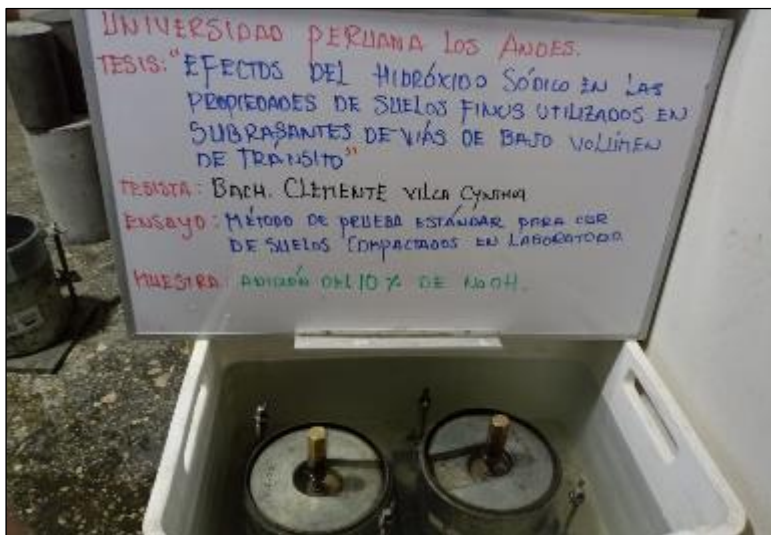 UNIVERSIDAD PERUANA LOS ANDES.
TESIS: "EFECTOS DEL HIDRÓXIDO SÓDICO EN LAS
PROPIEDADES DE SUELOS FINOS UTILIZADOS EN
SUBRASANTES DE VIÁS DE BAJO VOLÚMEN
DE TRÁNSITO"
TESISTA: BACH. CLEMENTE VILCA CYNTHIA
ENSAYO: MÉTODO DE PRUEBA ESTÁNDAR PARA CBR
DE SUELOS COMPACTADOS EN LABORATORIO
MUESTRA: ADICIÓN DEL 10% DE NaOH.